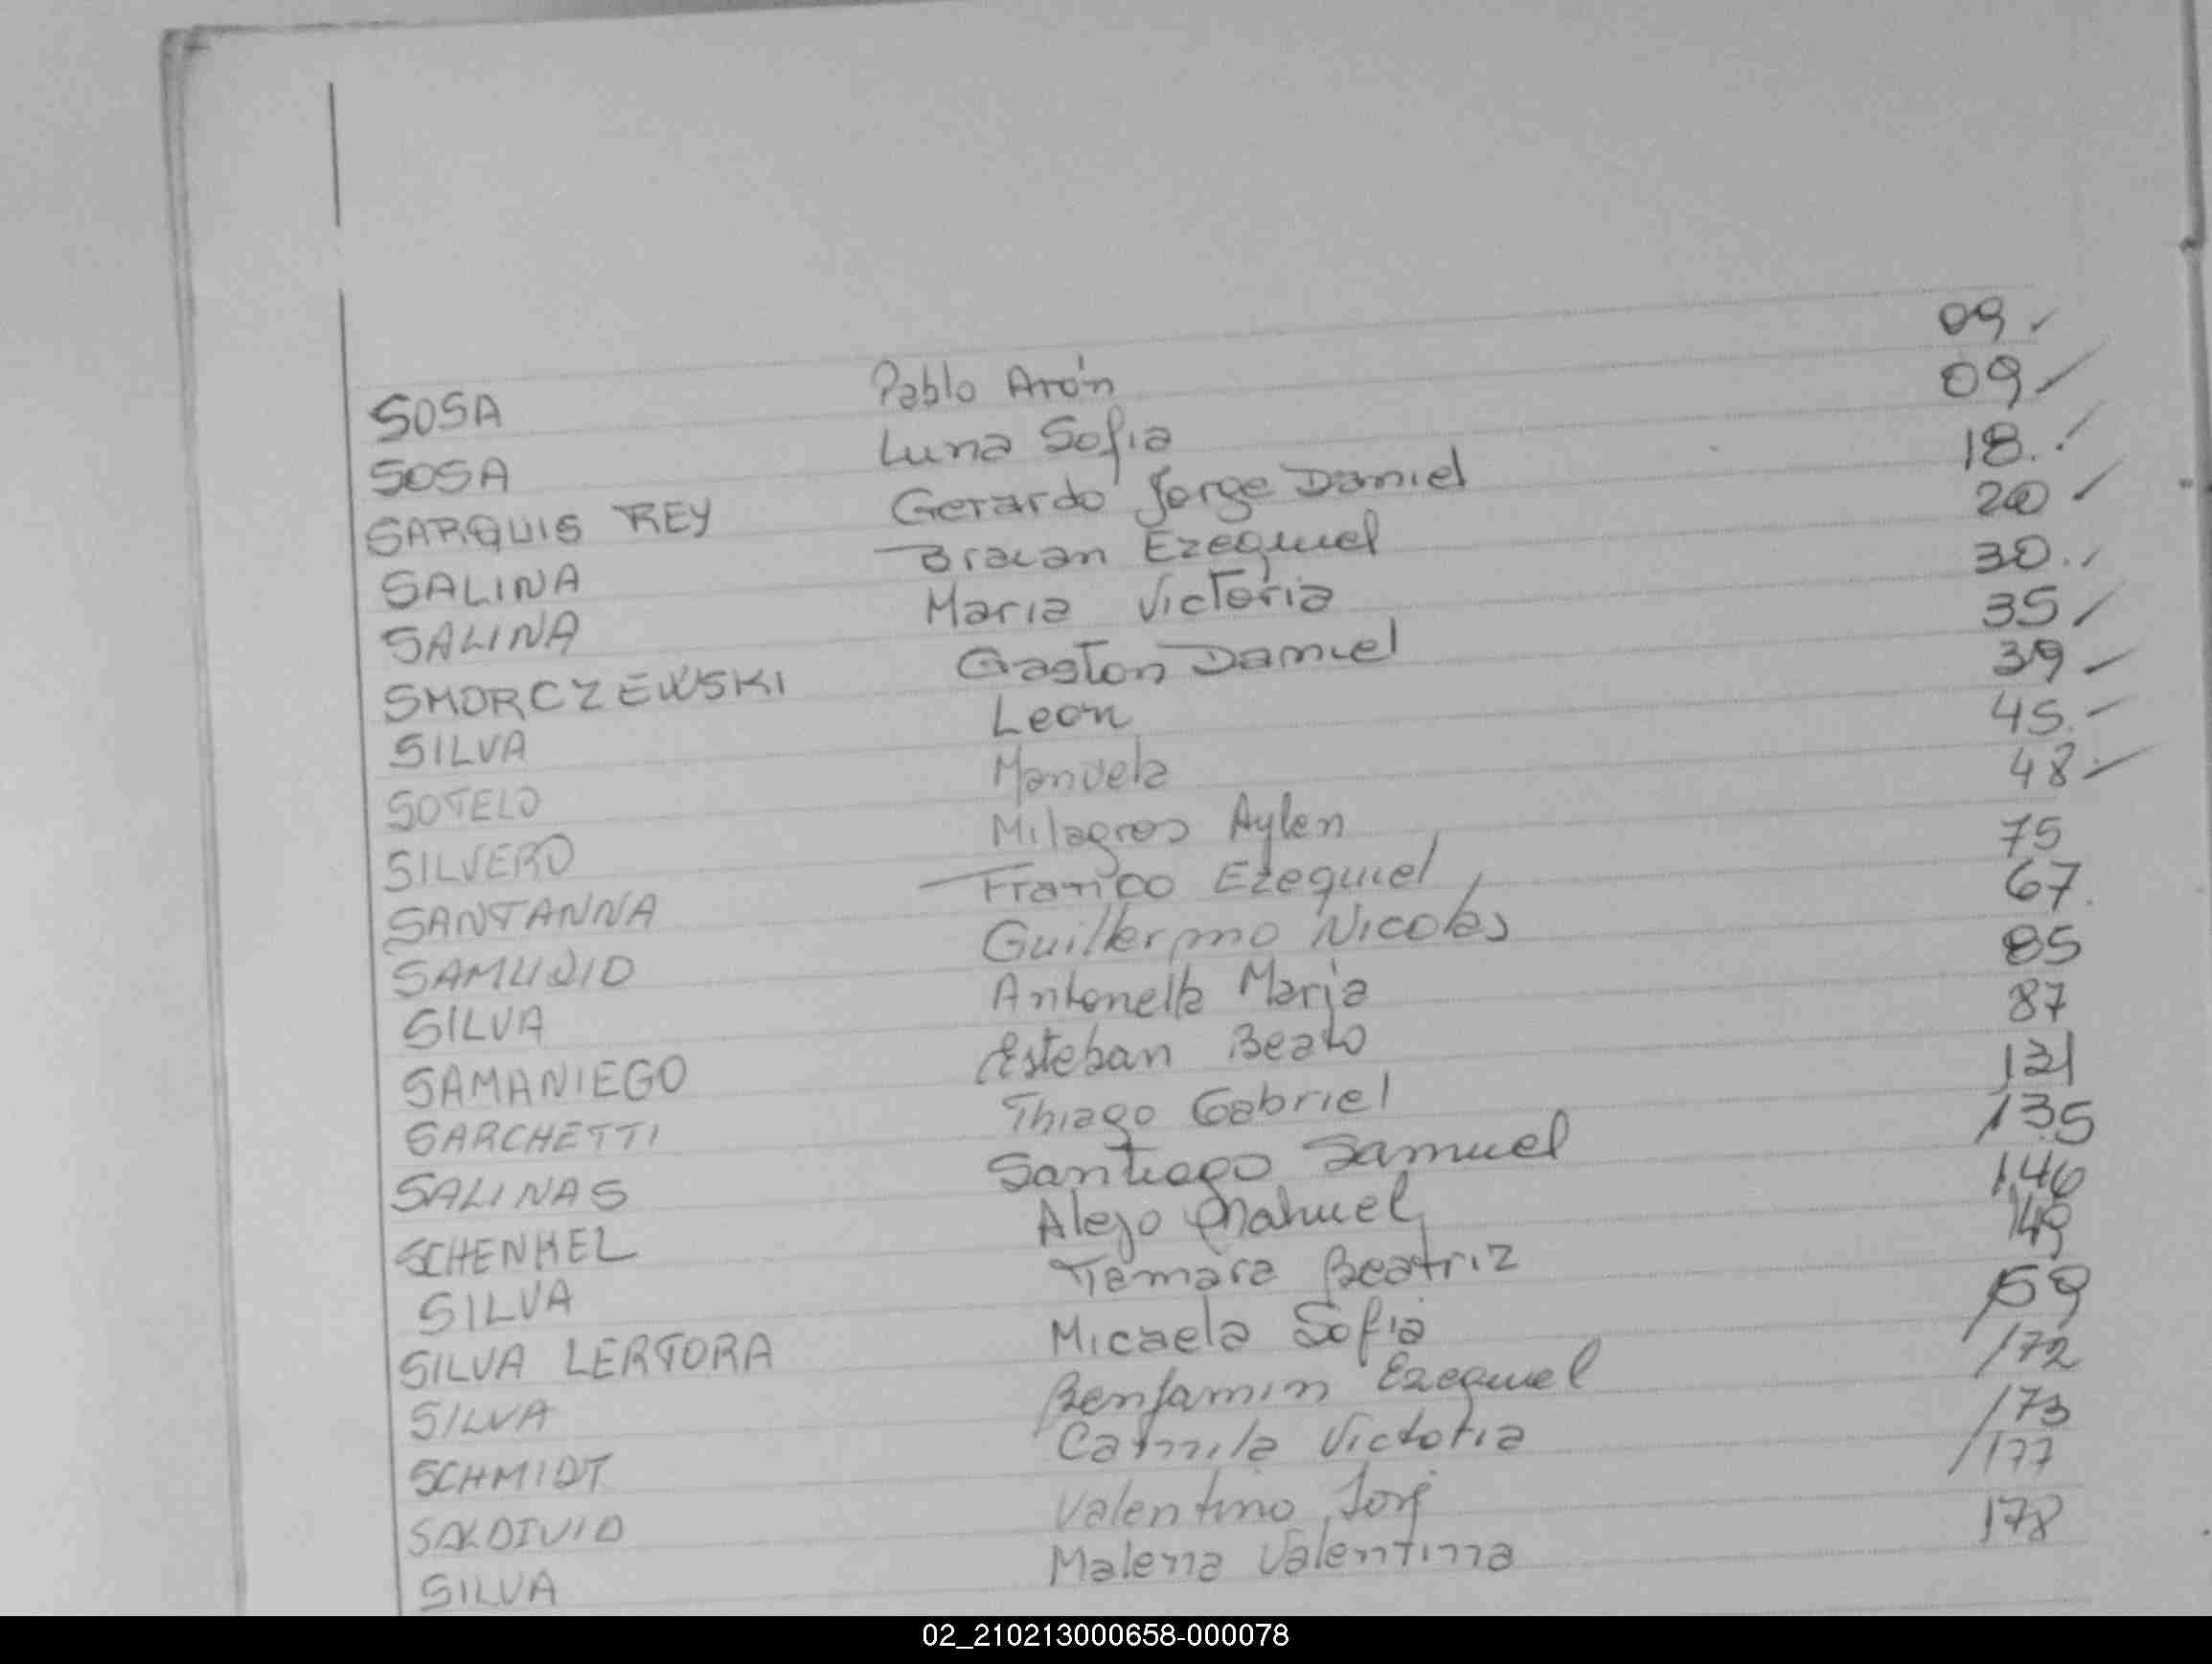 SOSA Pablo Arón 09
SOSA Luna Sofia 09
SARQUIS REY Gerardo Jorge Daniel 18.
SALINA Braian Ezequiel 20
SALINA Maria Victoria 30.
SMORCZEWSKI Gaston Daniel 35
SILVA Leon 39
SOTELO Manuela 45.
SILVERO Milagros Aylen 48
SANTANNA Franco Ezequiel 75
SAMUDIO Guillermo Nicolás 67.
SILVA Antonella Maria 85
SAMANIEGO Esteban Beato 87
SARCHETTI Thiago Gabriel 131
SALINAS Santiago Samuel 135
SCHENKEL Alejo Nahuel 146
SILVA Tamara Beatriz 149
SILVA LERTORA Micaela Sofia 159
SILVA Benjamin Ezequiel 172
SCHMIDT Camila Victoria 173
SALDIVID Valentino 177
SILVA Malena Valentina 178
02_210213000658-000078